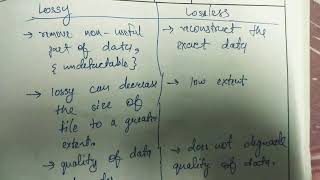 Lossy
→ remove non-useful
part of data,
{ undetectable }
→ lossy can decrease
the size of
file to a greater
extent.
→ quality of data
Lossless
→ reconstruct the
exact data
→ low extent
→ does not degrade
quality of data.